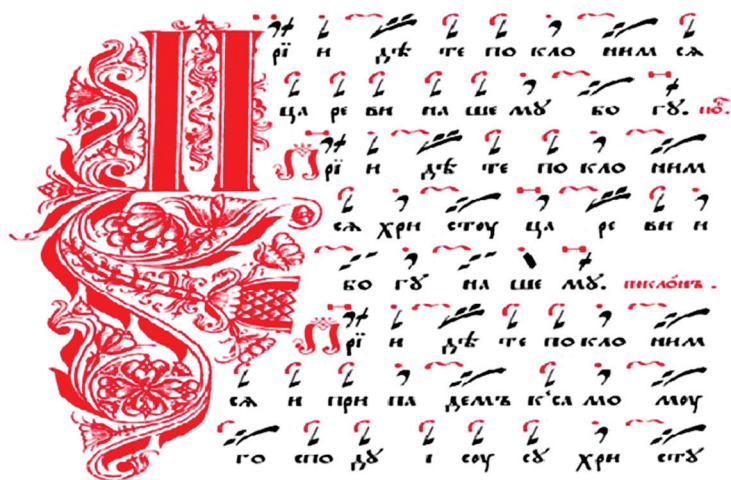 Прїи дѣ те по кло ним сѧ
ца ре ви на ше мꙋ бо гꙋ. по҃.
Прїи дѣ те по кло ним
сѧ хри стоу ца ре ви и
бо гꙋ на ше мꙋ. поклóнъ.
Прїи дѣ те по кло ним
сѧ и при па демъ к'са мо моу
го спо дꙋ і соу сꙋ хри стꙋ